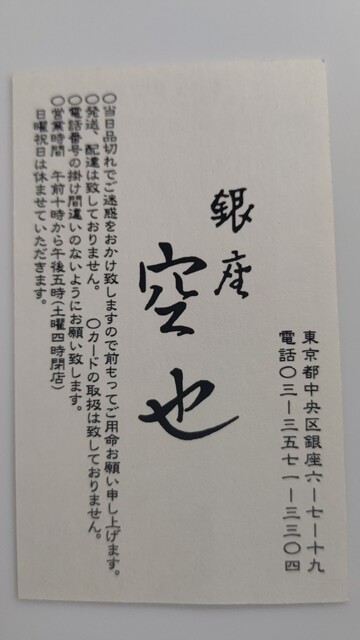 東京都中央区銀座六ー七ー十九
電話〇三ー三五七一ー三三〇四
銀座
空也
〇当日品切れでご迷惑をおかけ致しますので前もってご用命お願い申し上げます。
〇発送、配達は致しておりません。　〇カードの取扱は致しておりません。
〇電話番号の掛け間違いのないようにお願い致します。
〇営業時間　午前十時から午後五時(土曜四時閉店)
日曜祝日は休ませていただきます。